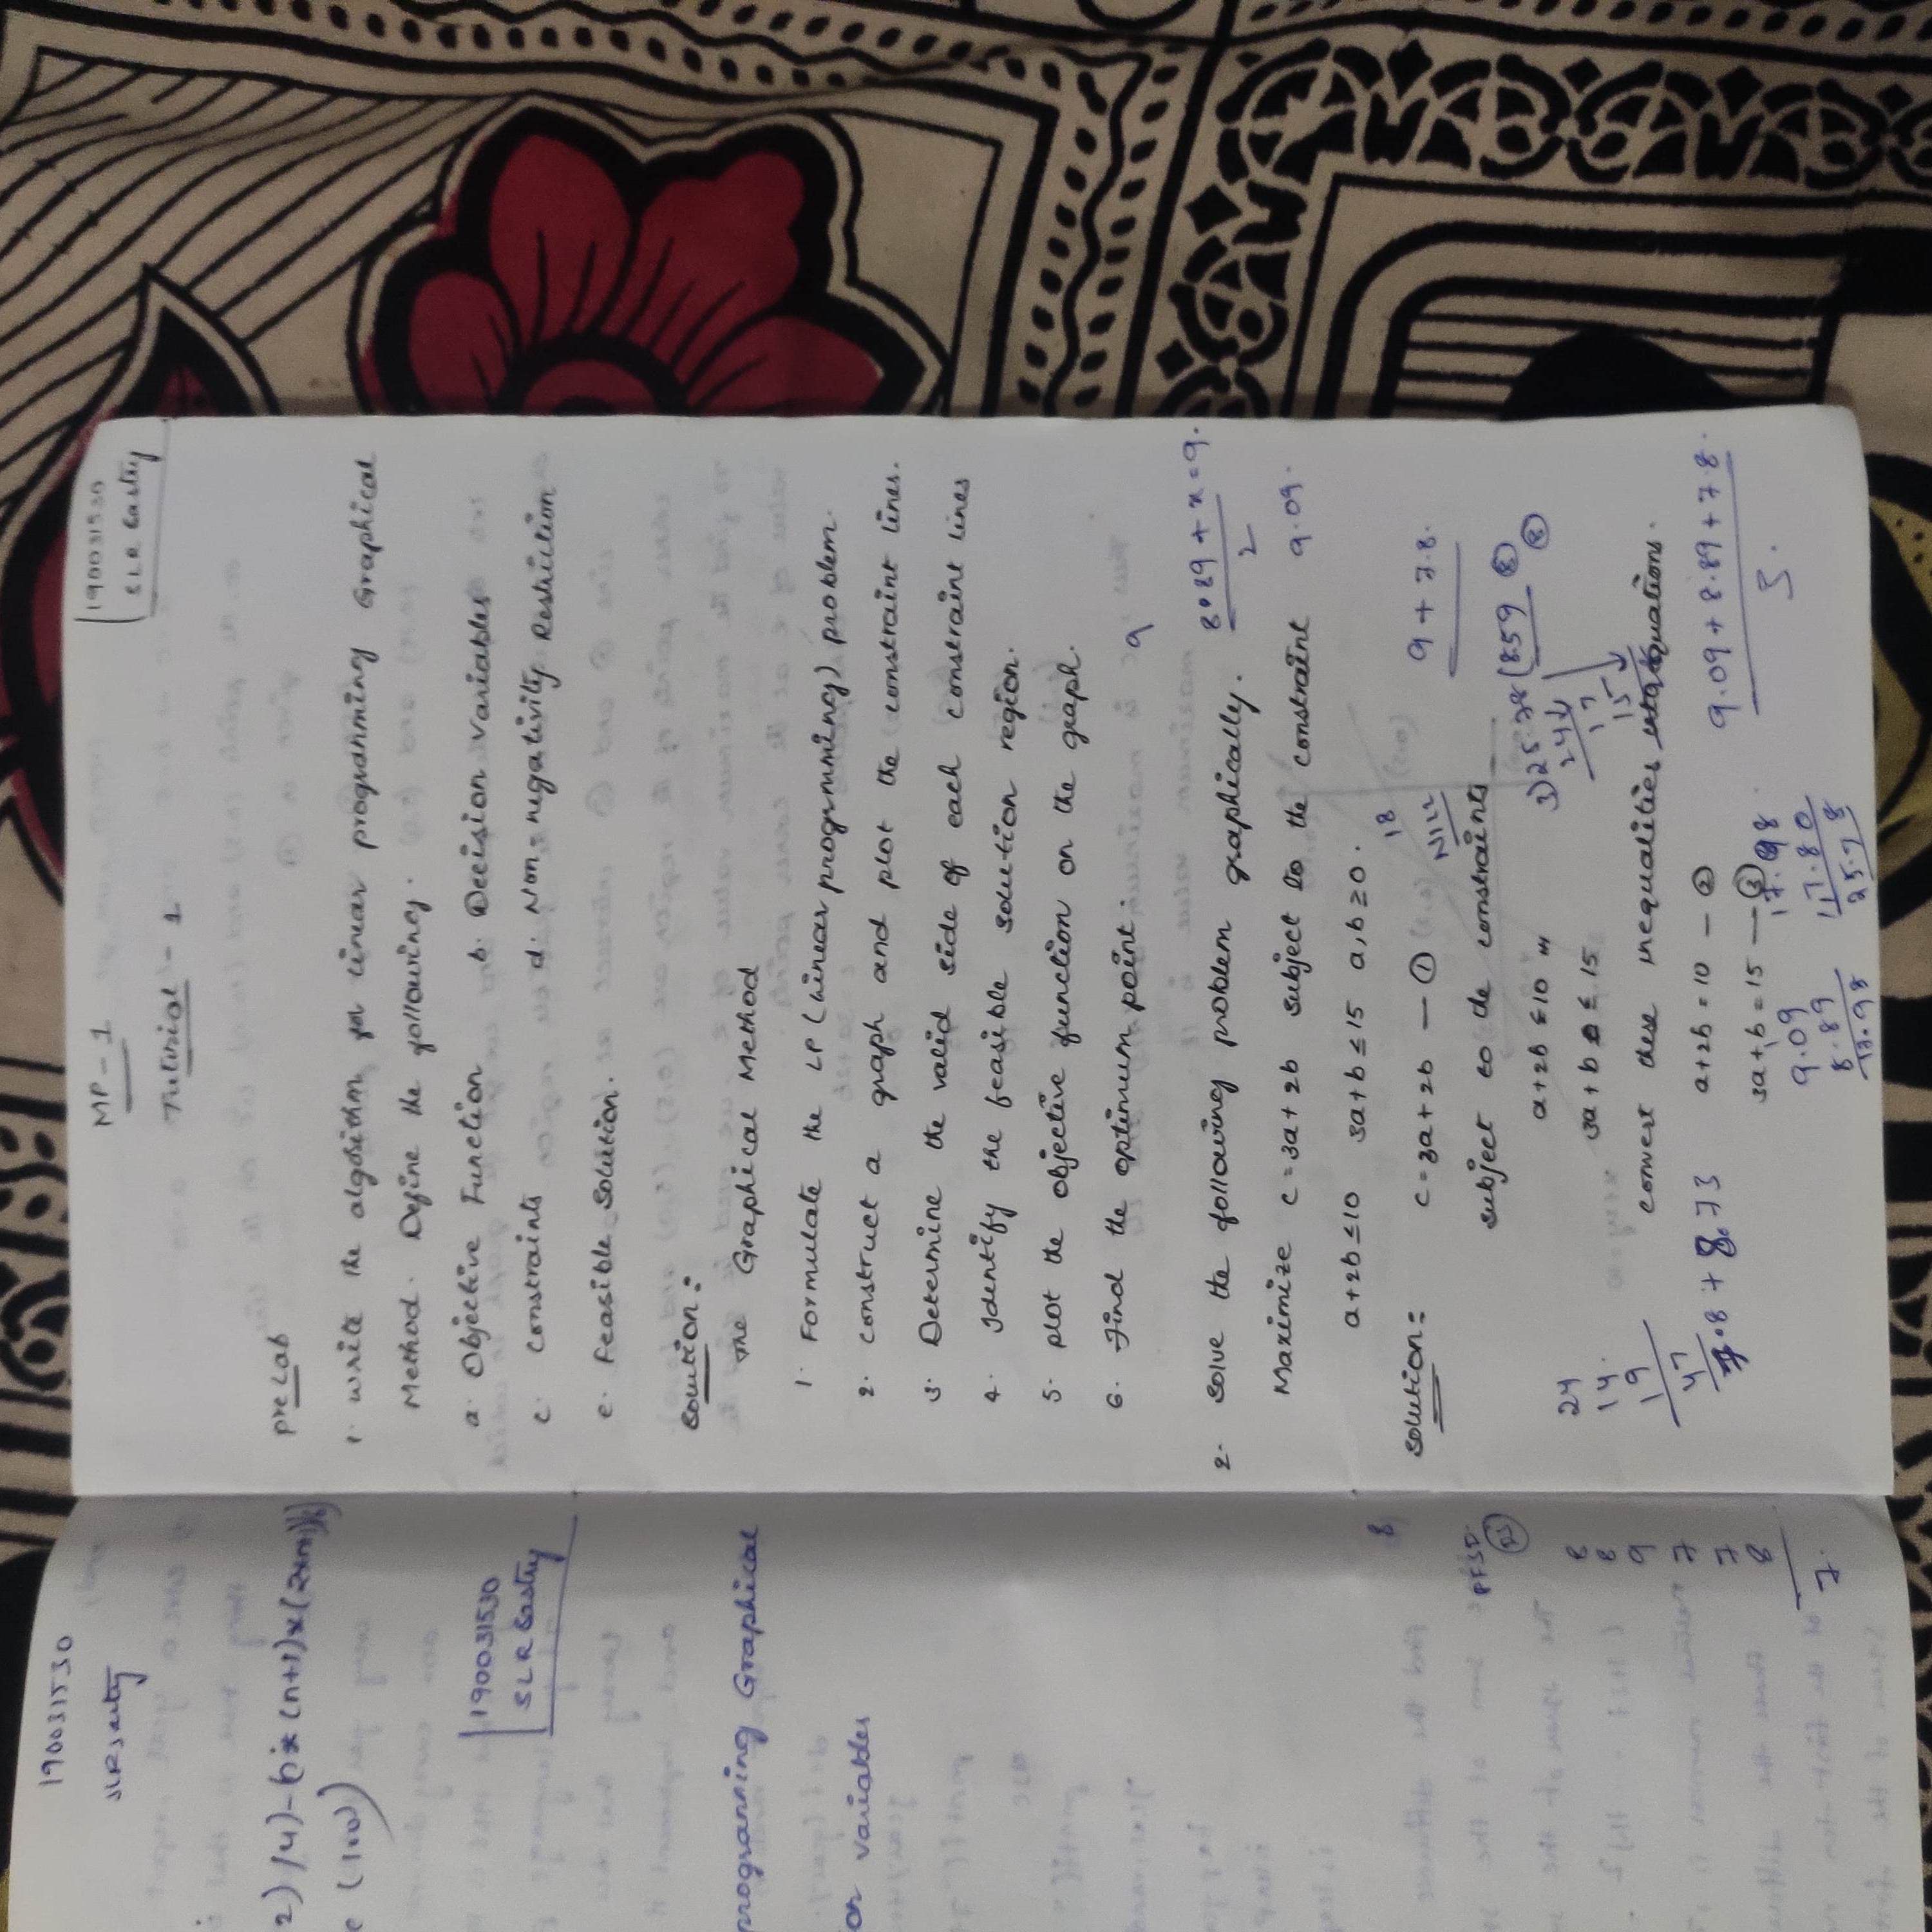 190031530
2) /4) - (n * (n+1) * (2*n+1)/6)
c (100)
190031530
SLR Sastry
programming Graphical
on variables
8
PFSD
2
8
8
9
7
7
8
7.
MP - 1
190031530
SLR Sastry
Tutorial - 1
pre Lab
1. write the algorithm for linear programming Graphical
Method. Define the following.
a. Objective Function b. Decision variables
c. constraints d. Non-negativity Restriction
e. Feasible Solution.
Solution:
The Graphical Method
1. Formulate the LP (Linear progrmming) problem.
2. construct a graph and plot the constraint lines.
3. Determine the valid side of each constraint lines
4. Identify the feasible solution region.
5. plot the objective function on the graph.
6. Find the optimum point.
9
2. Solve the following problem graphically.
8.89 + x = 9.
2
Maximize c = 3a + 2b subject to the constraint
9.09.
a+2b ≤ 10 3a+b ≤ 15 a,b ≥ 0.
18
Solution: c = 3a + 2b — ①
9 + 7.8.
subject to the constraints
3) 25.78 (8.59
24
17
15
a+2b ≤ 10
3a + b ≤ 15
24
14.
19
47
convert these inequalities equations.
7.8 + 8.73
a+2b = 10 — ②
3a+b = 15 — ③
9.09 + 8.89 + 7.8.
3.
9.09
8.89
17.98
17.98
7.80
25.78